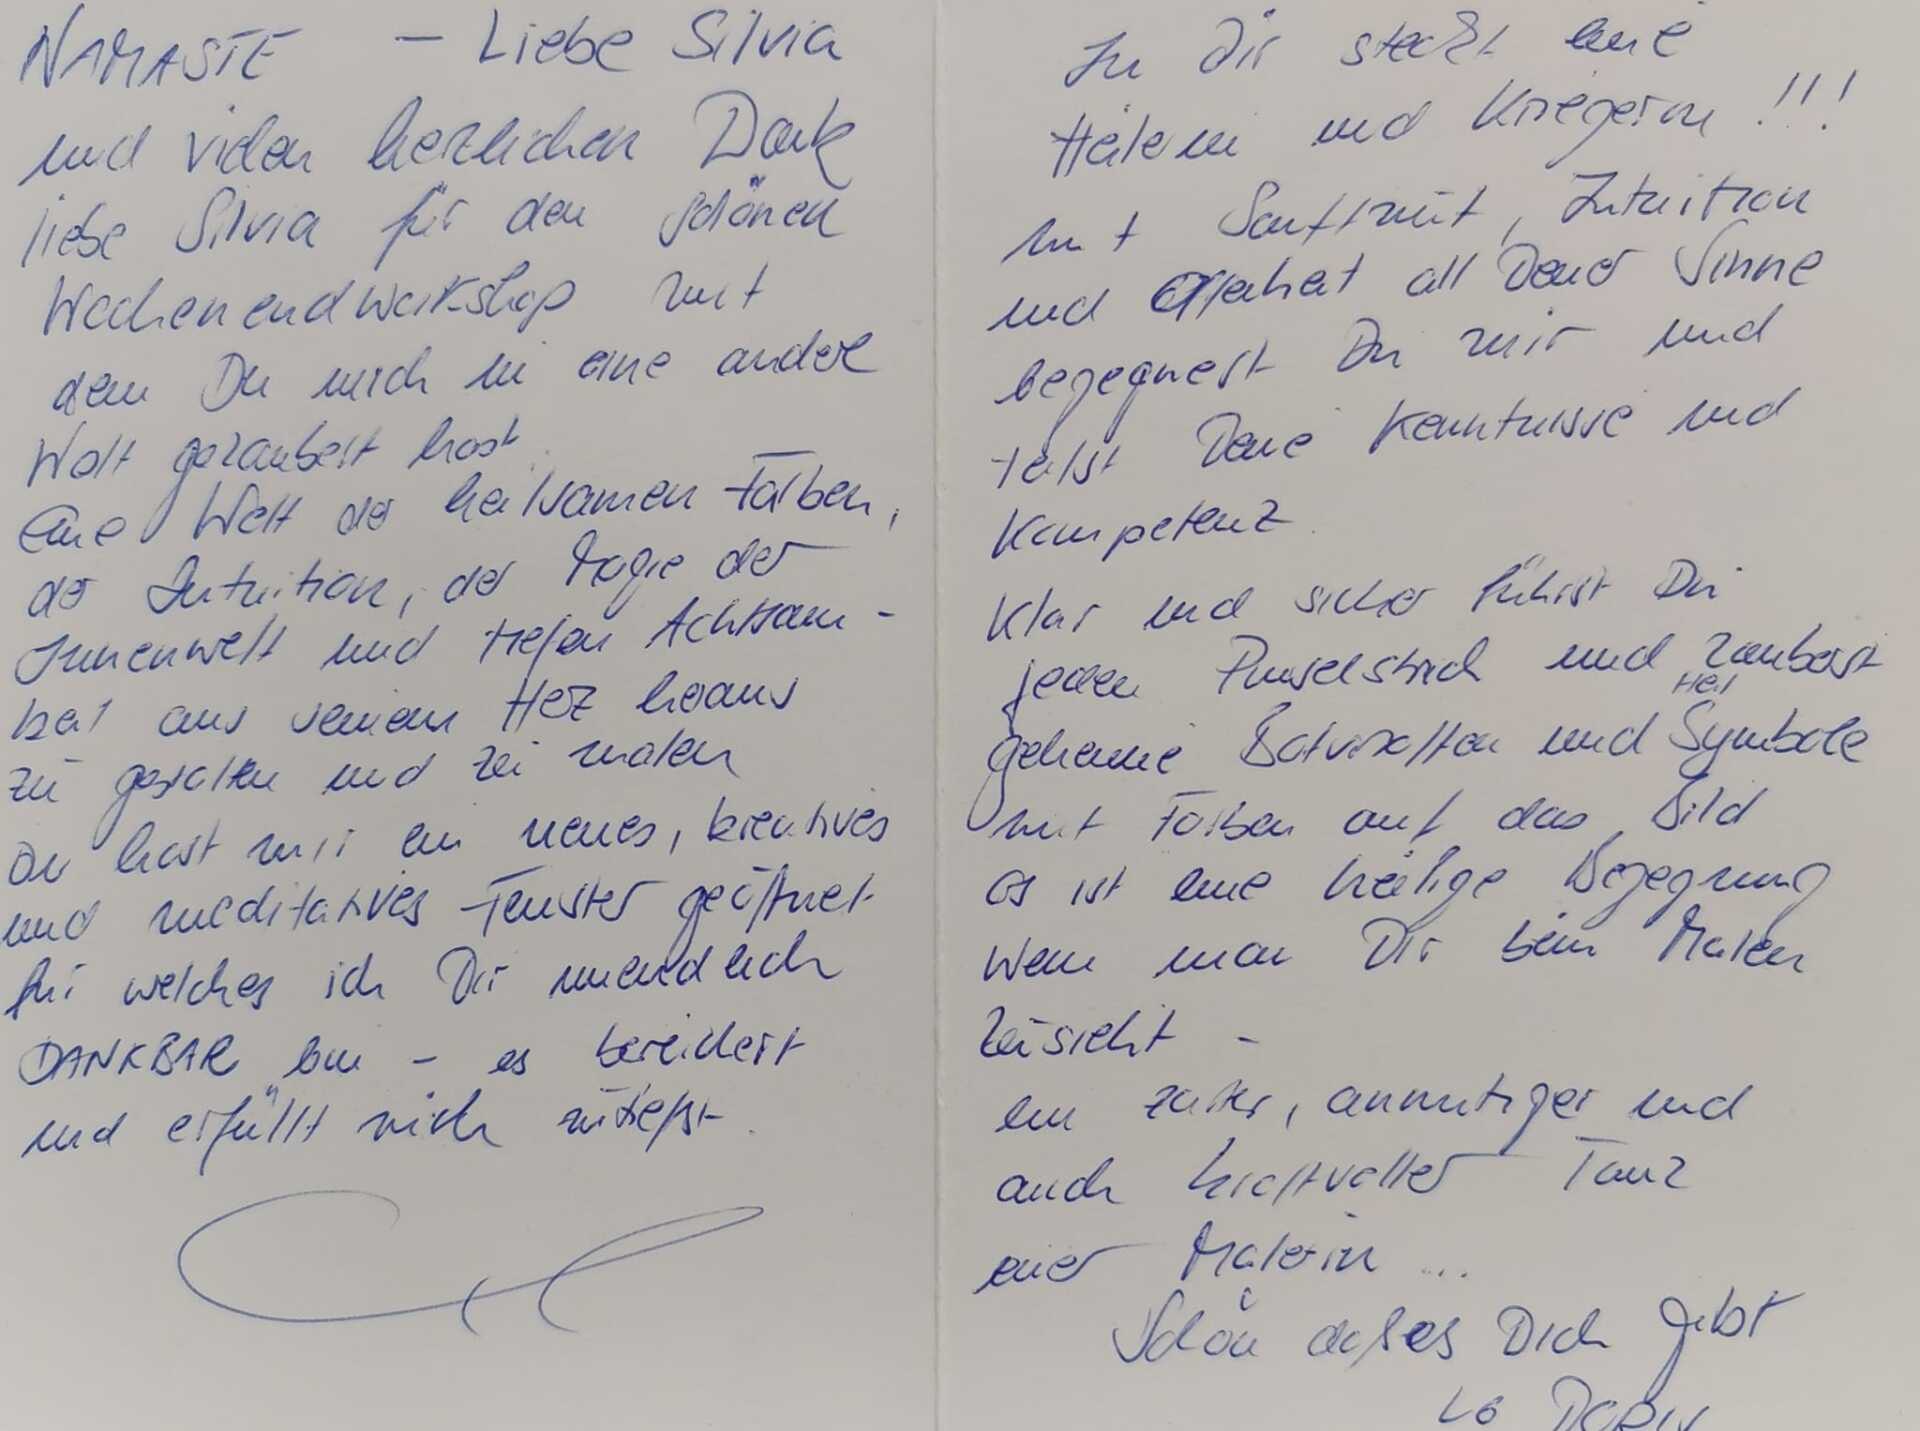 NAMASTE – Liebe Silvia
und vielen herzlichen Dank
liebe Silvia für den schönen
Wochenendworkshop mit
dem Du mich in eine andere
Welt gezaubert hast.
Eine Welt der heilsamen Farben,
der Intuition, der Magie der
Innenwelt und tiefen Achtsam-
keit aus seinem Herz heraus
zu gestalten und zu malen
Du hast mir ein neues, kreatives
und meditatives Fenster geöffnet
für welches ich Dir unendlich
DANKBAR bin – es bereichert
und erfüllt mich zutiefst.
In Dir steckt eine
Heilerin und Kriegerin !!!
mit Sanftmut, Intuition
und Offenheit all Deiner Sinne
begegnest Du mir und
teilst Deine Kenntnisse und
Kompetenz.
Klar und sicher führst Du
jeden Pinselstrich und zauberst
geheime Botschaften und Heil Symbole
mit Farben auf das Bild
es ist eine heilige Begegnung
wenn man Dir beim Malen
zusieht –
ein zarter, anmutiger und
auch kraftvoller Tanz
einer Malerin ...
Schön daß es Dich gibt
LG DORIS